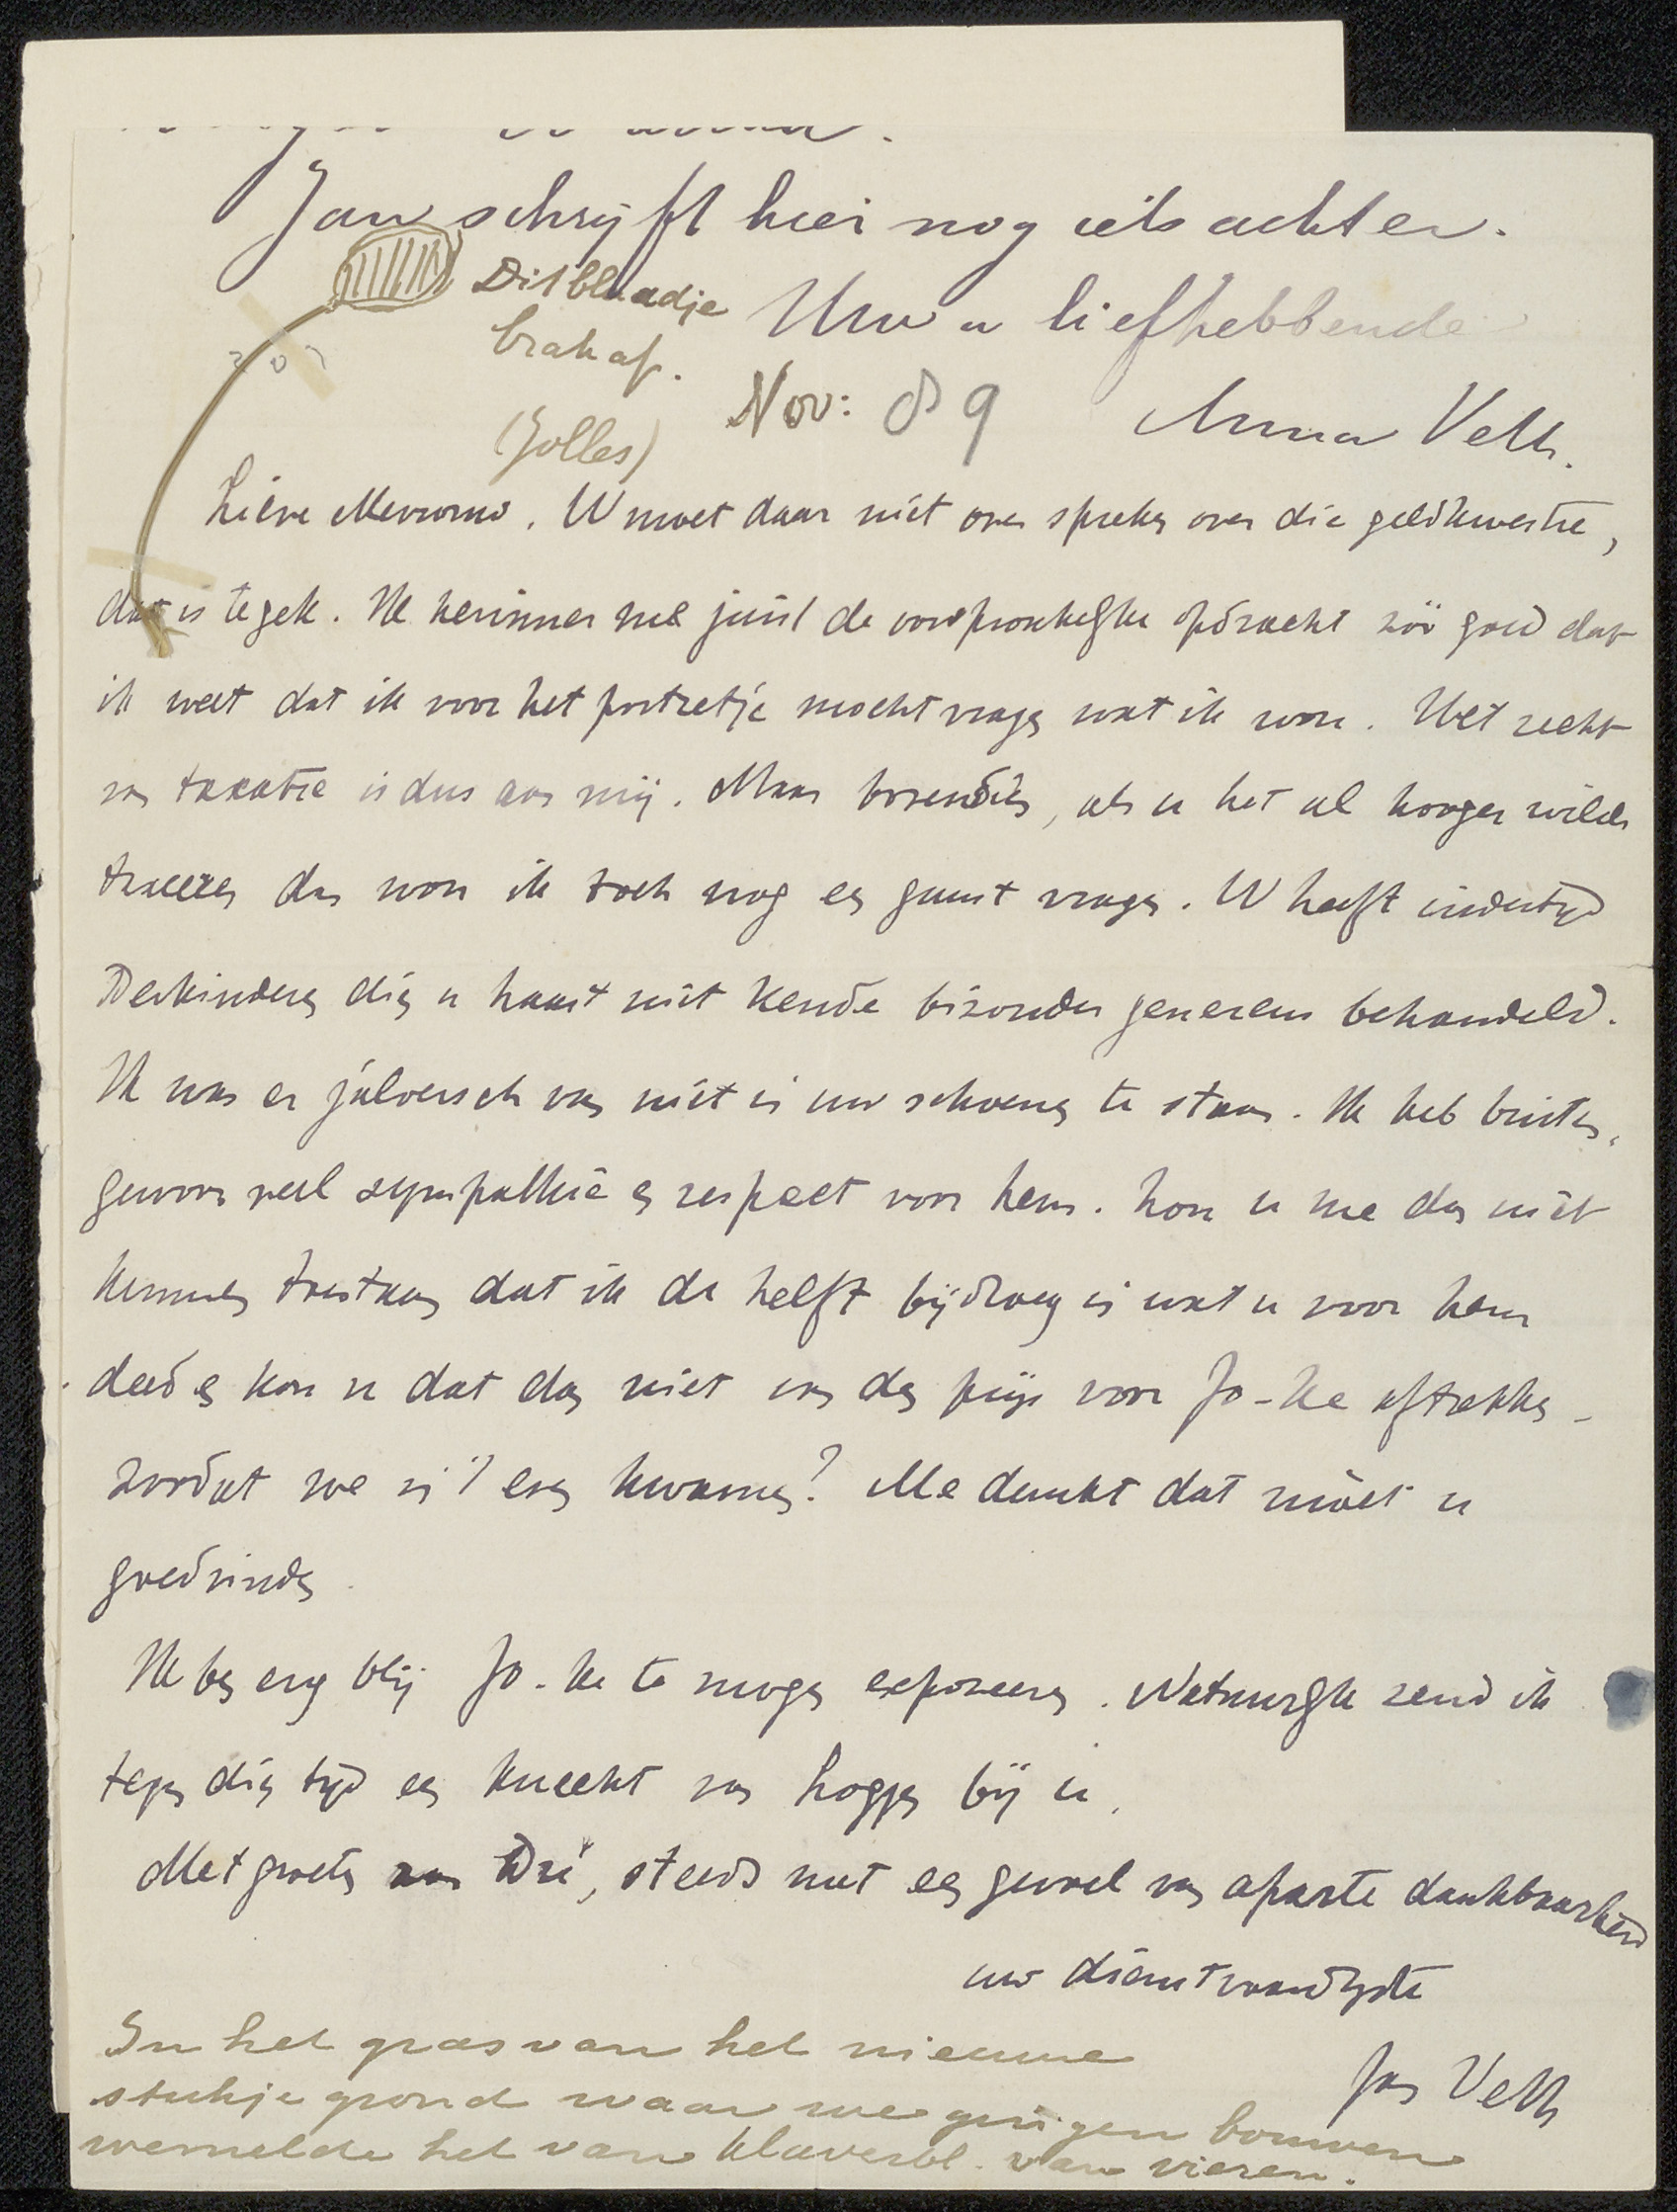 Jan schrijft hier nog iets achter.
Dit blaadje
brak af.
(Jolles)
Uw u liefhebbende
Nov: 89
Anna Veth.
Lieve Mevrouw. U moet daar niet over spreken over die geldkwestie,
dat is te gek. Ik herinner me juist de oorspronkelijke opdracht zóó goed dat
ik weet dat ik voor het portretje mocht vragen wat ik wou. Het recht
van taxatie is dus aan mij. Maar bovendien, als u het al hooger wilde
taxeeren dan wou ik toch nog een gunst vragen. U heeft indertijd
Derkinderen dien u haast niet kende bizonder genereus behandeld.
Ik was er jaloersch van niet in uw schoenen te staan. Ik heb buiten-
gewoon veel sympathie en respect voor hem. Kon u me dan niet
kunnen toestaan dat ik de helft bijdroeg in wat u voor hem
deed en kon u dat dan niet van den prijs voor Jo-ke aftrekken -
zoodat we in 't even kwamen? Me dunkt dat móet u
goedvinden.
Ik ben erg blij Jo-ke te mogen exposeeren. Natuurlijk zend ik
tegen dien tijd een knecht van bij u.
Met groeten van steeds met een gevoel van aparte dankbaarheid
uw dienstvaardigste
Jan Veth
In het gras van het nieuwe
stukje grond waar we gingen bouwen
wemelde het van klaverbl. van vieren.